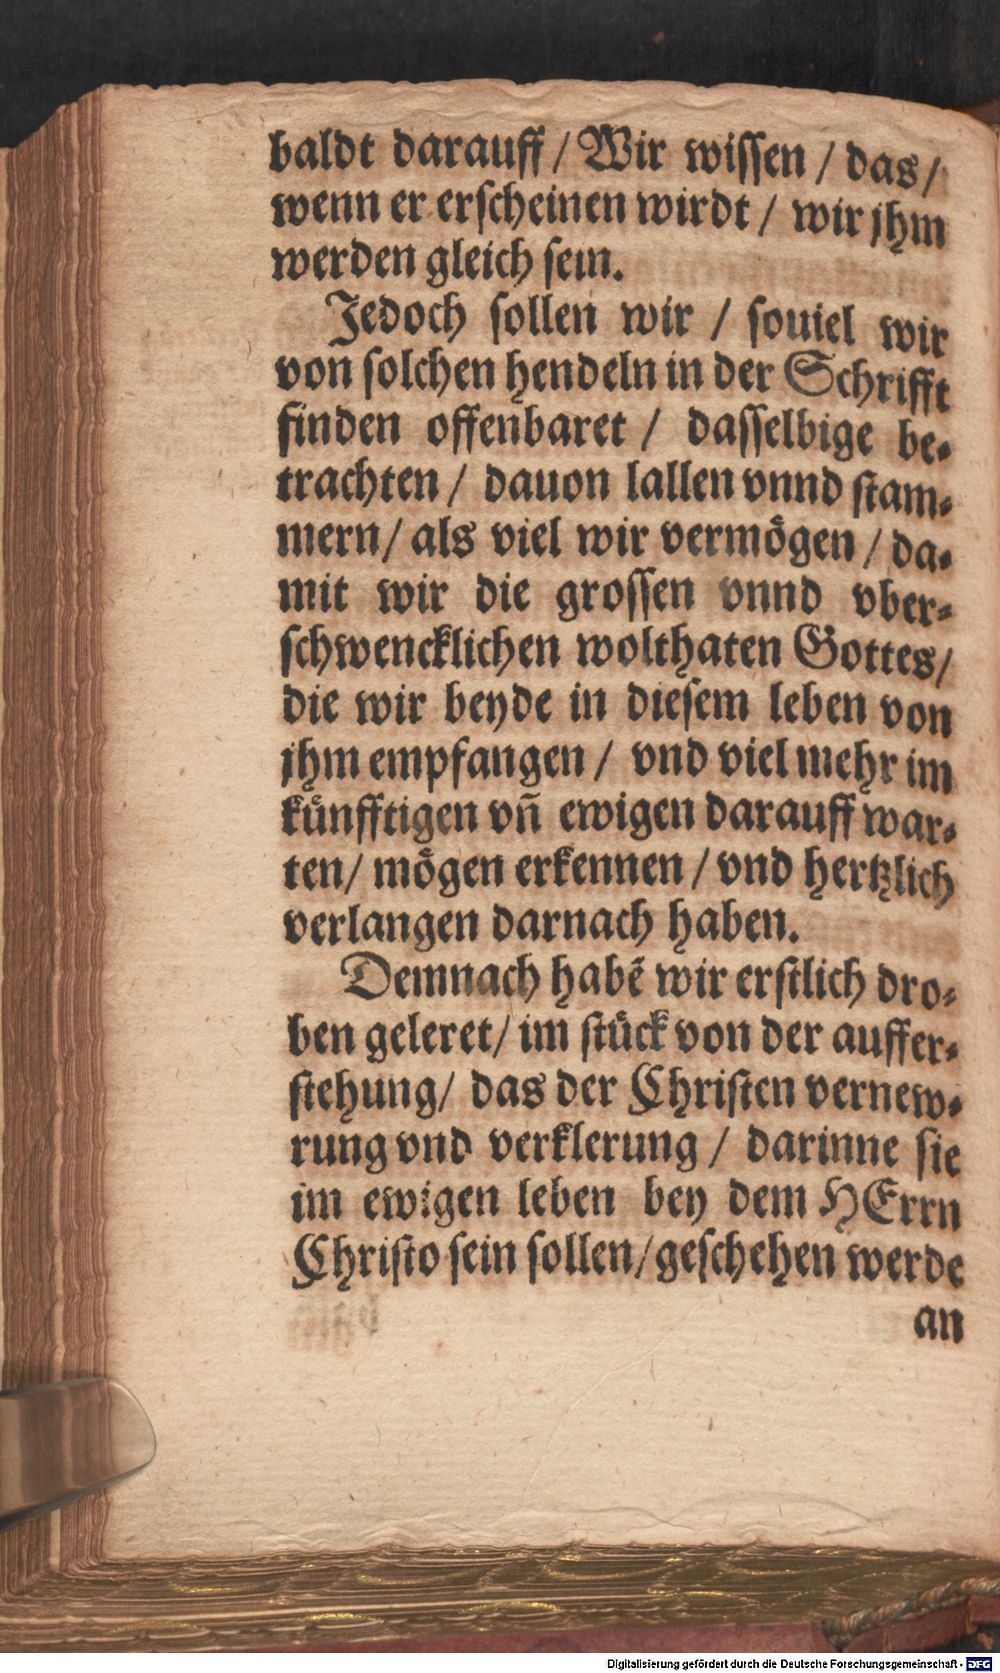 baldt darauff / Wir wissen / das /
wenn er erscheinen wirdt / wir jhm
werden gleich sein.
Jedoch sollen wir / souiel wir
von solchen hendeln in der Schrifft
finden offenbaret / dasselbige be-
trachten / dauon lallen vnnd stam-
mern / als viel wir vermoͤgen / da-
mit wir die grossen vnnd vber-
schwencklichen wolthaten Gottes /
die wir beyde in diesem leben von
jhm empfangen / vnd viel mehr im
kuͤnfftigen vñ ewigen darauff war-
ten / moͤgen erkennen / vnd hertzlich
verlangen darnach haben.
Demnach habẽ wir erstlich dro-
ben geleret / im stuͤck von der auffer-
stehung / das der Christen vernew-
rung vnd verklerung / darinne sie
im ewigen leben bey dem HErrn
Christo sein sollen / geschehen werde
an
Digitalisierung gefördert durch die Deutsche Forschungsgemeinschaft - DFG